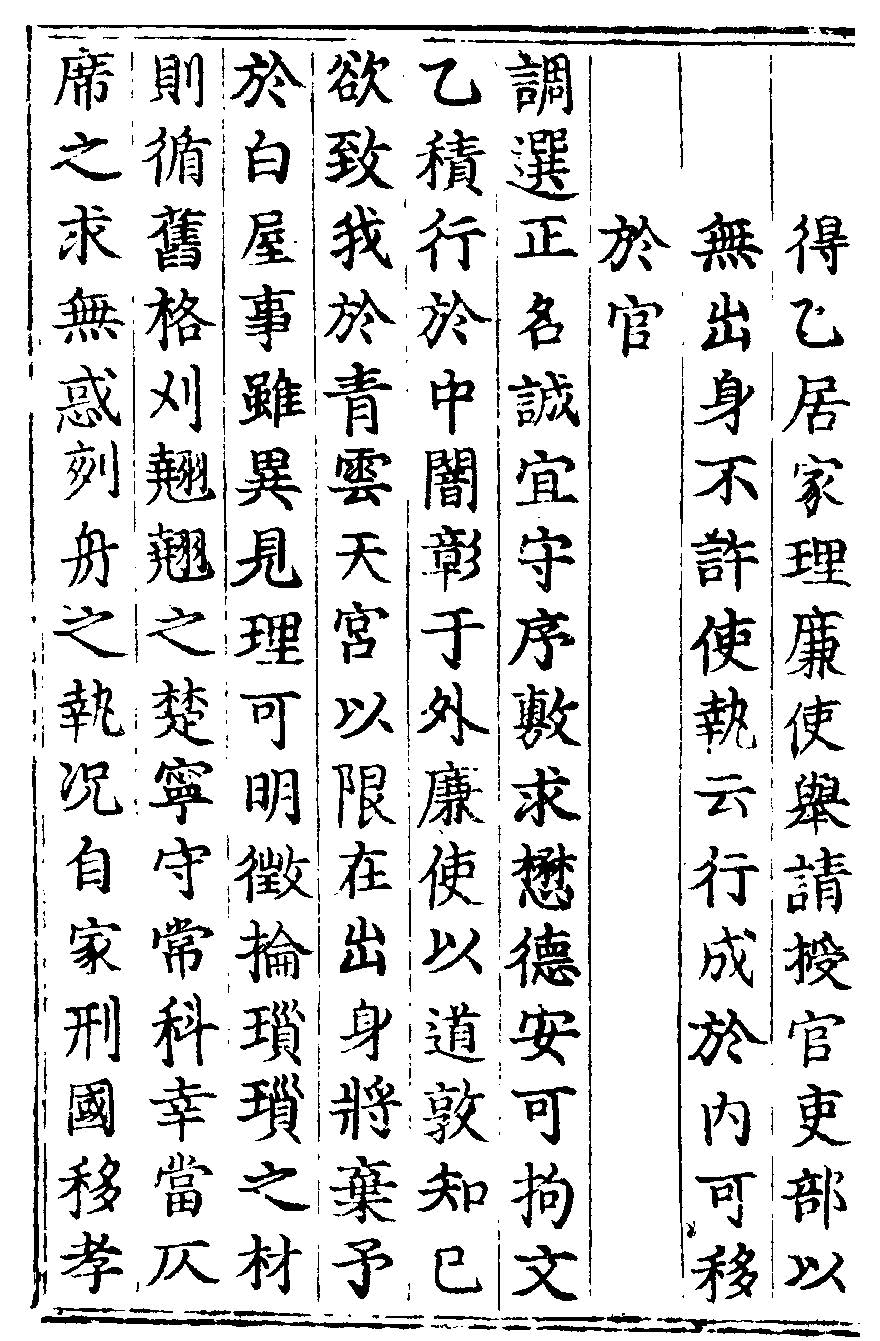 得乙居家理廉使舉請授官吏部以
無出身不許使執云行成於内可移
於官
調選正名誠宜守序敷求懋德安可拘文
乙積行於中闇彰于外廉使以道敦知已
欲致我於青雲天官以限在出身將棄予
於白屋事雖異見理可明徵掄瑣瑣之材
則循舊格刈翹翹之楚寧守常科幸當仄
席之求無惑刻舟之執况自家刑國移孝